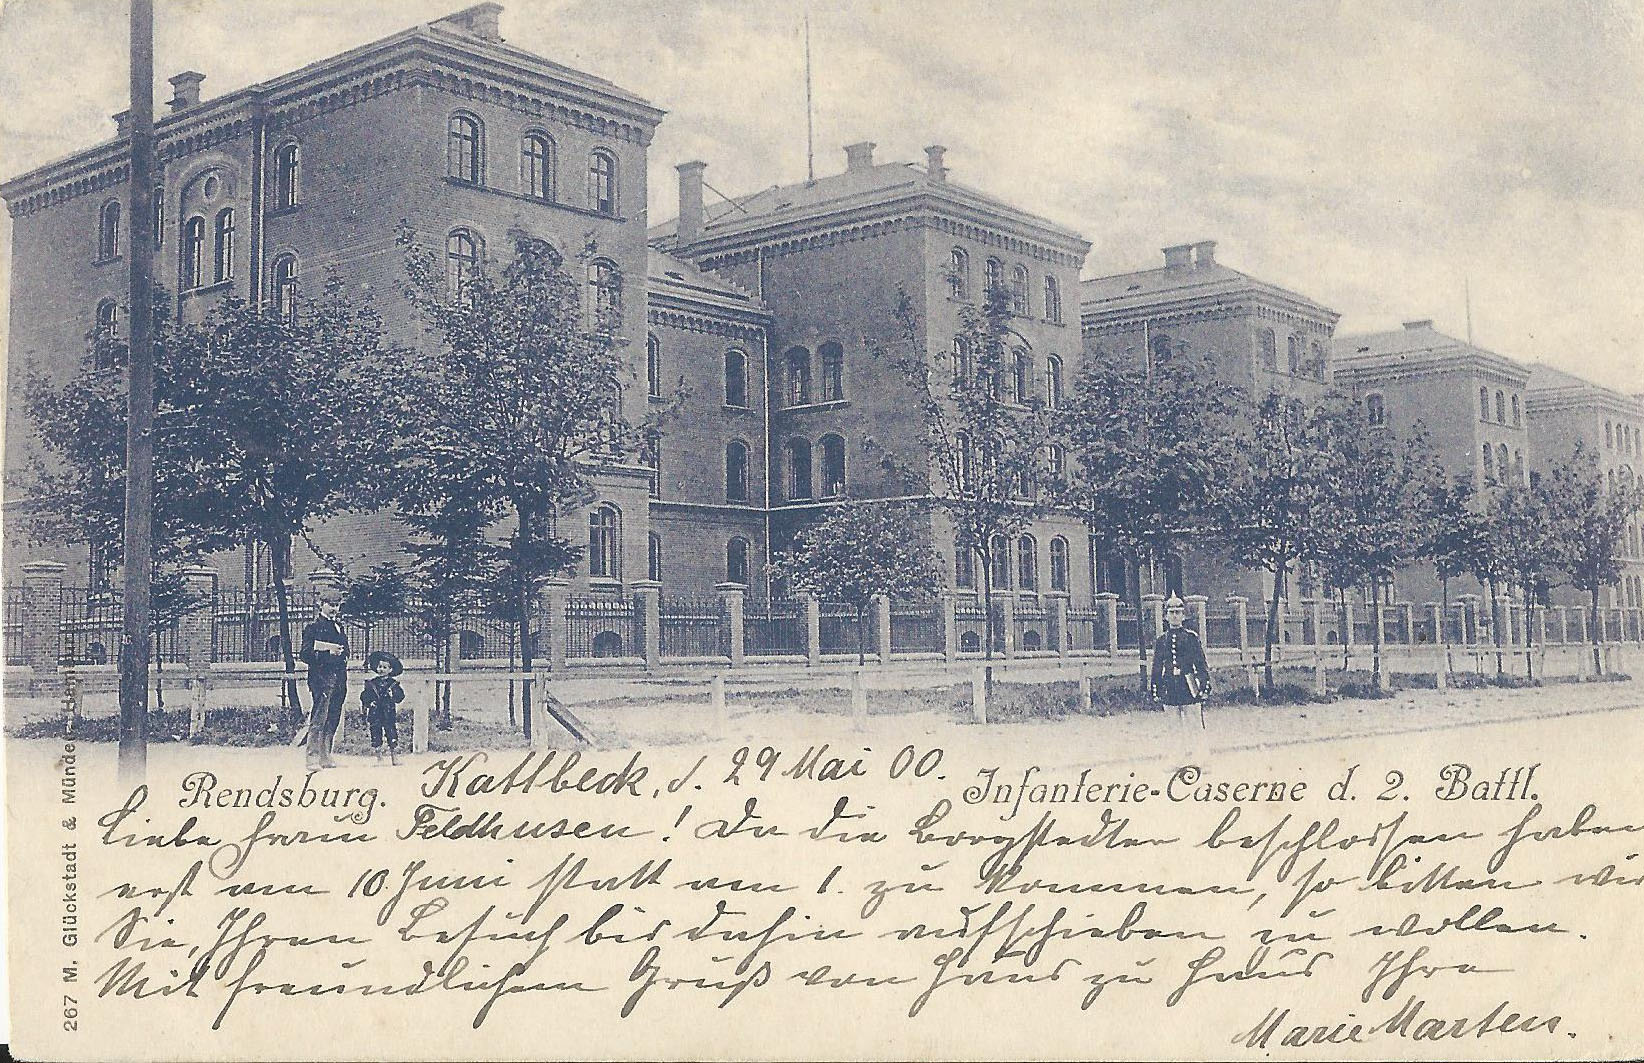 Kattbeck, d. 29 Mai 00.
Rendsburg. Infanterie-Caserne d. 2. Battl.
Liebe Frau Feldhusen! Da die Borgstedter beschlossen haben
erst am 10. Juni statt am 1. zu kommen, so bitten wir
Sie, Ihren Besuch bis dahin aufschieben zu wollen.
Mit freundlichem Gruß von Haus zu Haus Ihre
Marie Martens.
267 M. Glückstadt & Münden, Hamburg